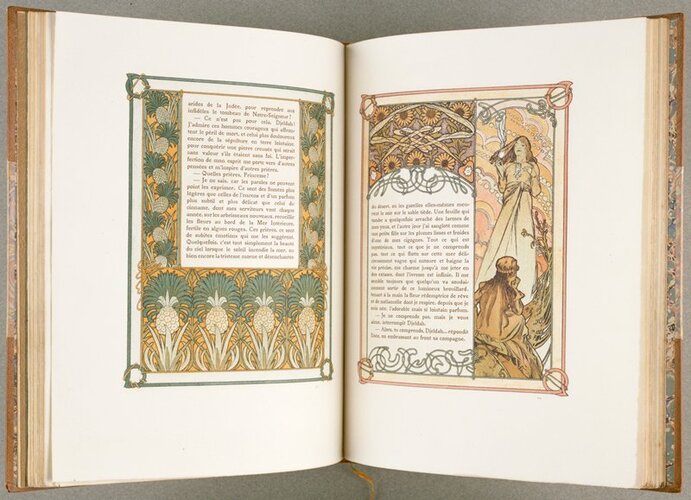 arides de la Judée, pour reprendre aux
infidèles le tombeau de Notre-Seigneur!
— Ce n'est pas pour cela, Djeldah!
J'admire ces hommes courageux qui affron-
tent le péril de mort, et celui plus douloureux
encore de la sépulture en terre lointaine,
pour conquérir une pierre creusée qui serait
sans valeur s'ils étaient sans foi. L'imper-
fection de mon esprit me porte vers d'autres
pensées et m'inspire d'autres prières.
— Quelles prières, Princesse?
— Je ne sais, car les paroles ne peuvent
point les exprimer. Ce sont des fumées plus
légères que celles de l'encens et d'un parfum
plus subtil et plus délicat que celui de
cinname, dont mes serviteurs vont chaque
année, sur les arbrisseaux nouveaux, recueillir
les fleurs au bord de la Mer lointaine,
fertile en algues rouges. Ces prières, ce sont
de subites émotions qui me les suggèrent.
Quelquefois, c'est tout simplement la beauté
du ciel lorsque le soleil incendie la mer, ou
bien encore la tristesse morne et désenchantée
du désert, où les gazelles elles-mêmes meu-
rent le soir sur le sable tiède. Une feuille qui
tombe a quelquefois arraché des larmes de
mes yeux, et l'autre jour j'ai sangloté comme
une petite fille sur les plumes lisses et froides
d'une de mes cigognes. Tout ce qui est
mystérieux, tout ce que je ne comprends
pas, tout ce qui flotte sur cette mer déli-
cieusement vague qui entoure et baigne la
vie précise, me charme jusqu'à me jeter en
des extases, dont l'ivresse est infinie. Il me
semble toujours que quelqu'un va soudai-
nement sortir de ce lumineux brouillard,
tenant à la main la fleur rédemptrice de rêve
et de surnaturelle dont je respire, depuis que je
suis née, l'adorable mais si lointain parfum.
— Je ne comprends pas, mais je vous
aime, interrompit Djeldah.
— Alors, tu comprends, Djeldah... répondit
Ilsée, en embrassant au front sa compagne.